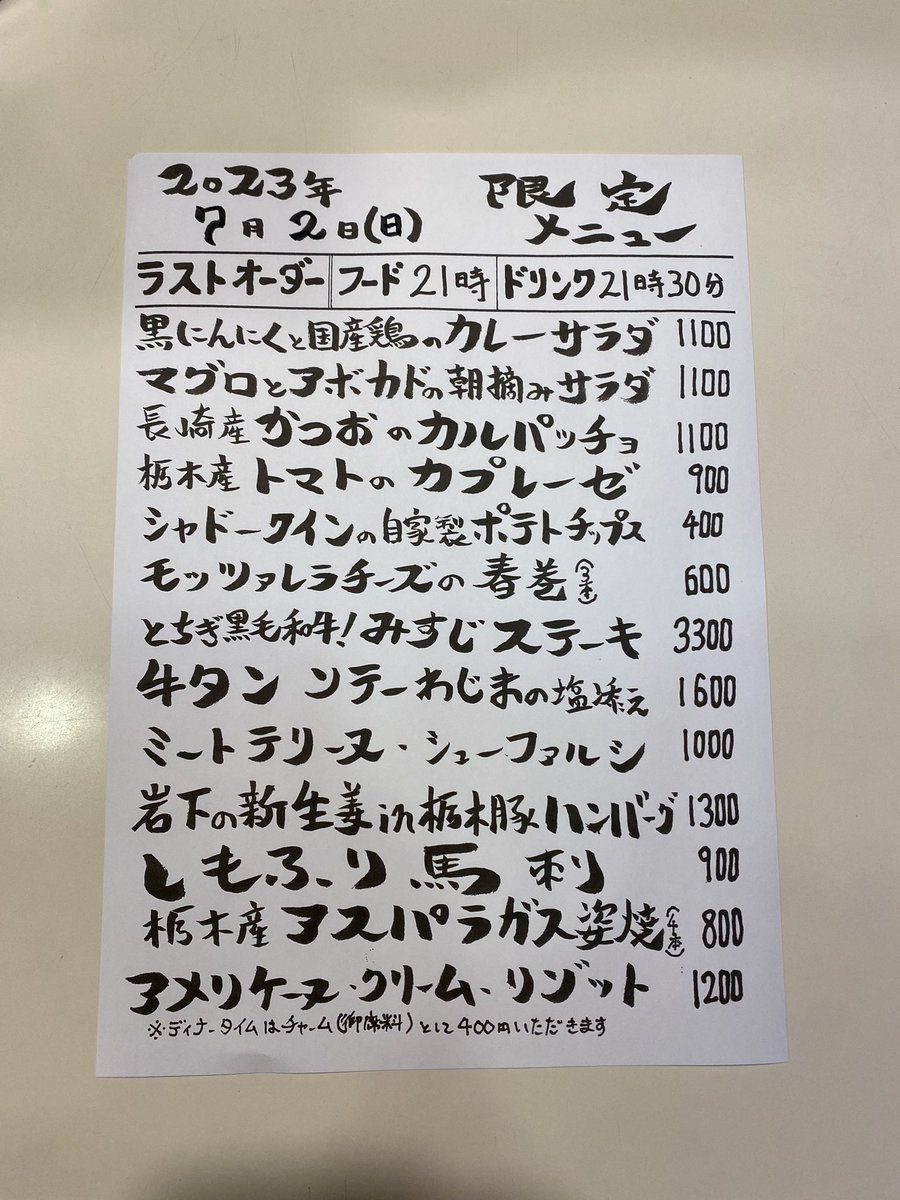 2023年
7月2日(日)
限定
メニュー
ラストオーダー フード21時 ドリンク21時30分
黒にんにくと国産鶏のカレーサラダ 1100
マグロとアボカドの朝摘みサラダ 1100
長崎産かつおのカルパッチョ 1100
栃木産トマトのカプレーゼ 900
シャドークインの自家製ポテトチップス 400
モッツァレラチーズの春巻(3本) 600
とちぎ黒毛和牛!みすじステーキ 3300
牛タンソテーわじまの塩添え 1600
ミートテリーヌ・シューファルシ 1000
岩下の新生姜in栃木豚ハンバーグ 1300
しもふり馬刺 900
栃木産アスパラガス姿焼(4本) 800
アメリケーヌ・クリーム・リゾット 1200
※ディナータイムはチャーム(御席料)として400円いただきます